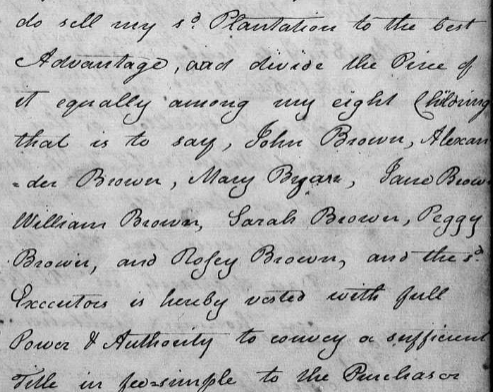 do sell my sd Plantation to the best
Advantage, and divide the Price of
it equally among my eight Children
that is to say, John Brown, Alexan
-der Brown, Mary Byars, Jane Brow
William Brown, Sarah Brown, Peggy
Brown, and Rosey Brown, and the sd
Executors is hereby vested with full
Power & Authority to convey a sufficient
Title in fee-simple to the Purchasor